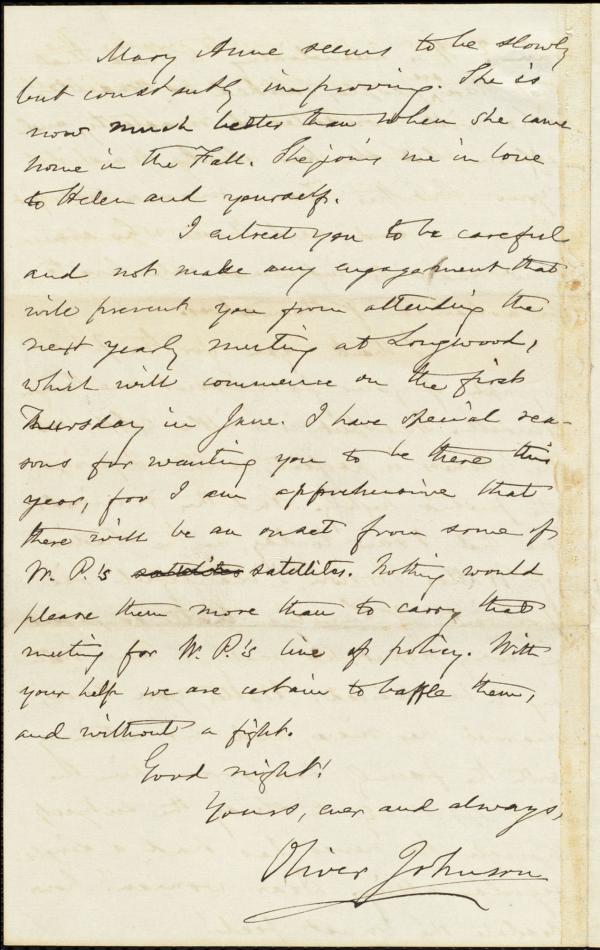 Mary Anne seems to be slowly
but constantly improving. She is
now much better than when she came
home in the Fall. She joins me in love
to Helen and yourself.
I entreat you to be careful
and not make any engagement that
will prevent you from attending the
next yearly meeting at Longwood,
which will commence on the first
Thursday in June. I have special rea-
sons for wanting you to be there this
year, for I am apprehensive that
there will be an onset from some of
W. P.'s satellites satellites. Nothing would
please them more than to carry that
meeting for W. P.'s line of policy. With
your help we are certain to baffle them,
and without a fight.
Good night!
Yours, ever and always,
Oliver Johnson